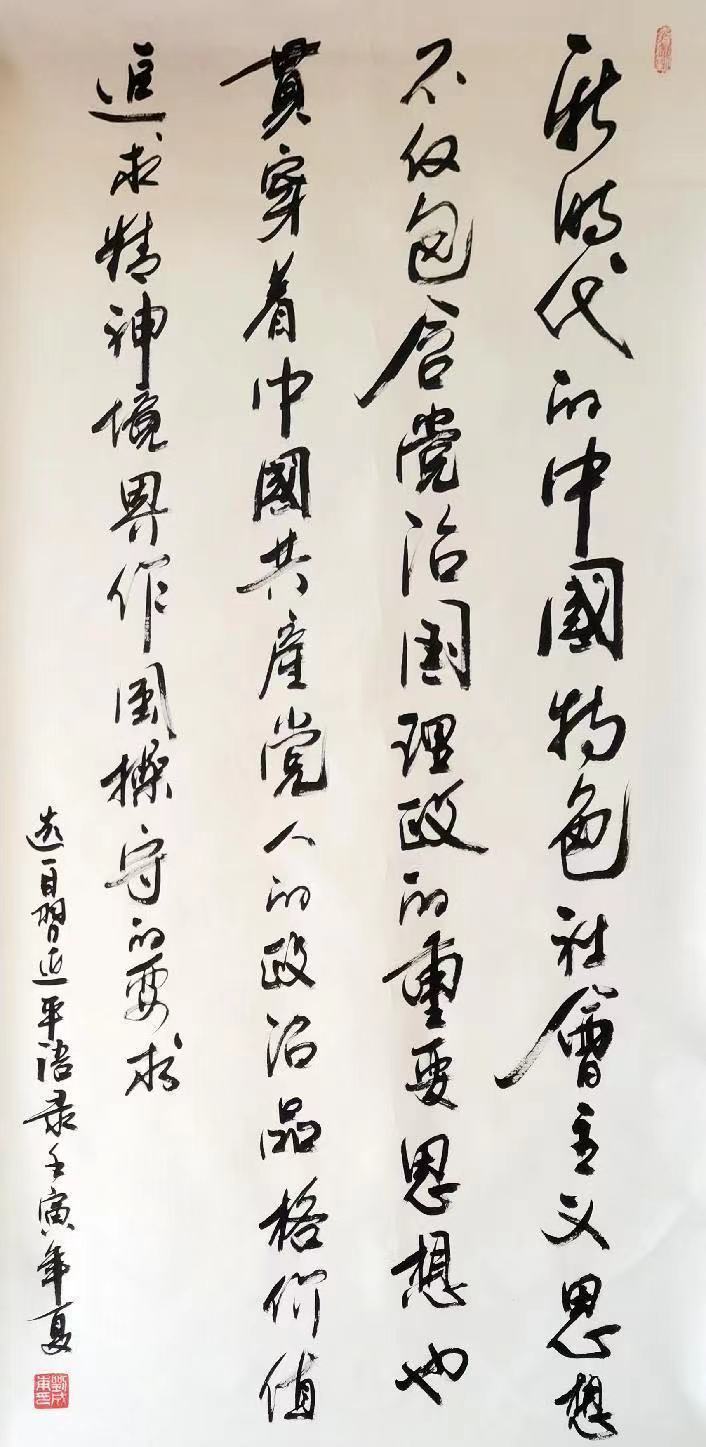 新时代的中國特色社會主义思想
不仅包含党治国理政的重要思想也
贯穿着中國共産党人的政治品格价值
追求精神境界作風操守的要求
选自習近平语录壬寅年夏